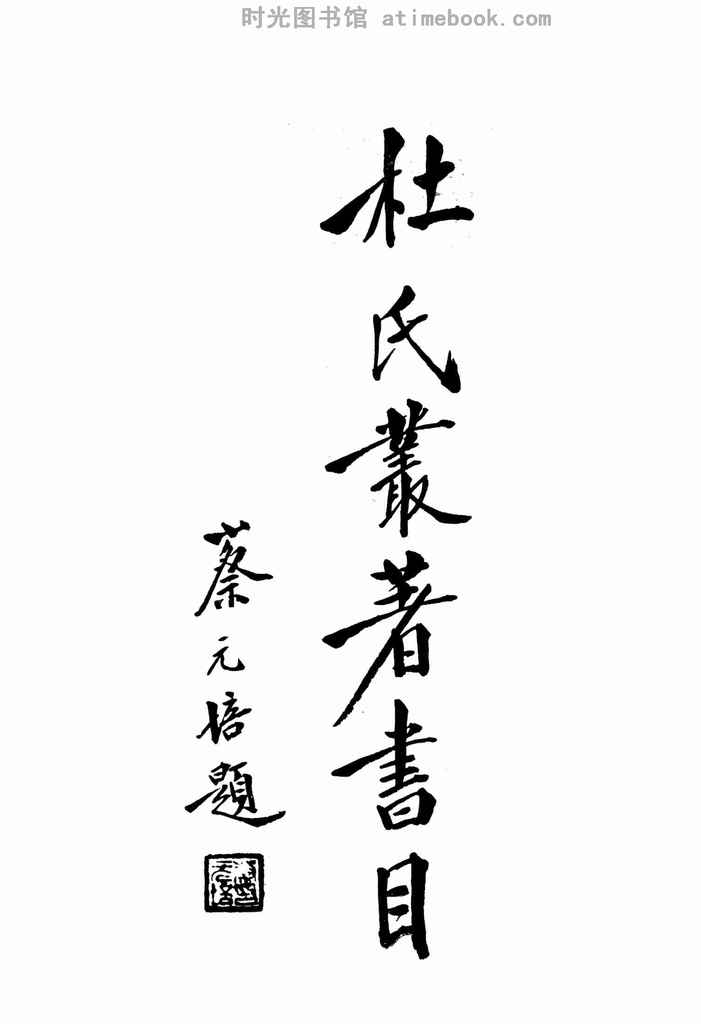 时光图书馆 atimebook.com
杜氏叢著書目
蔡元培題